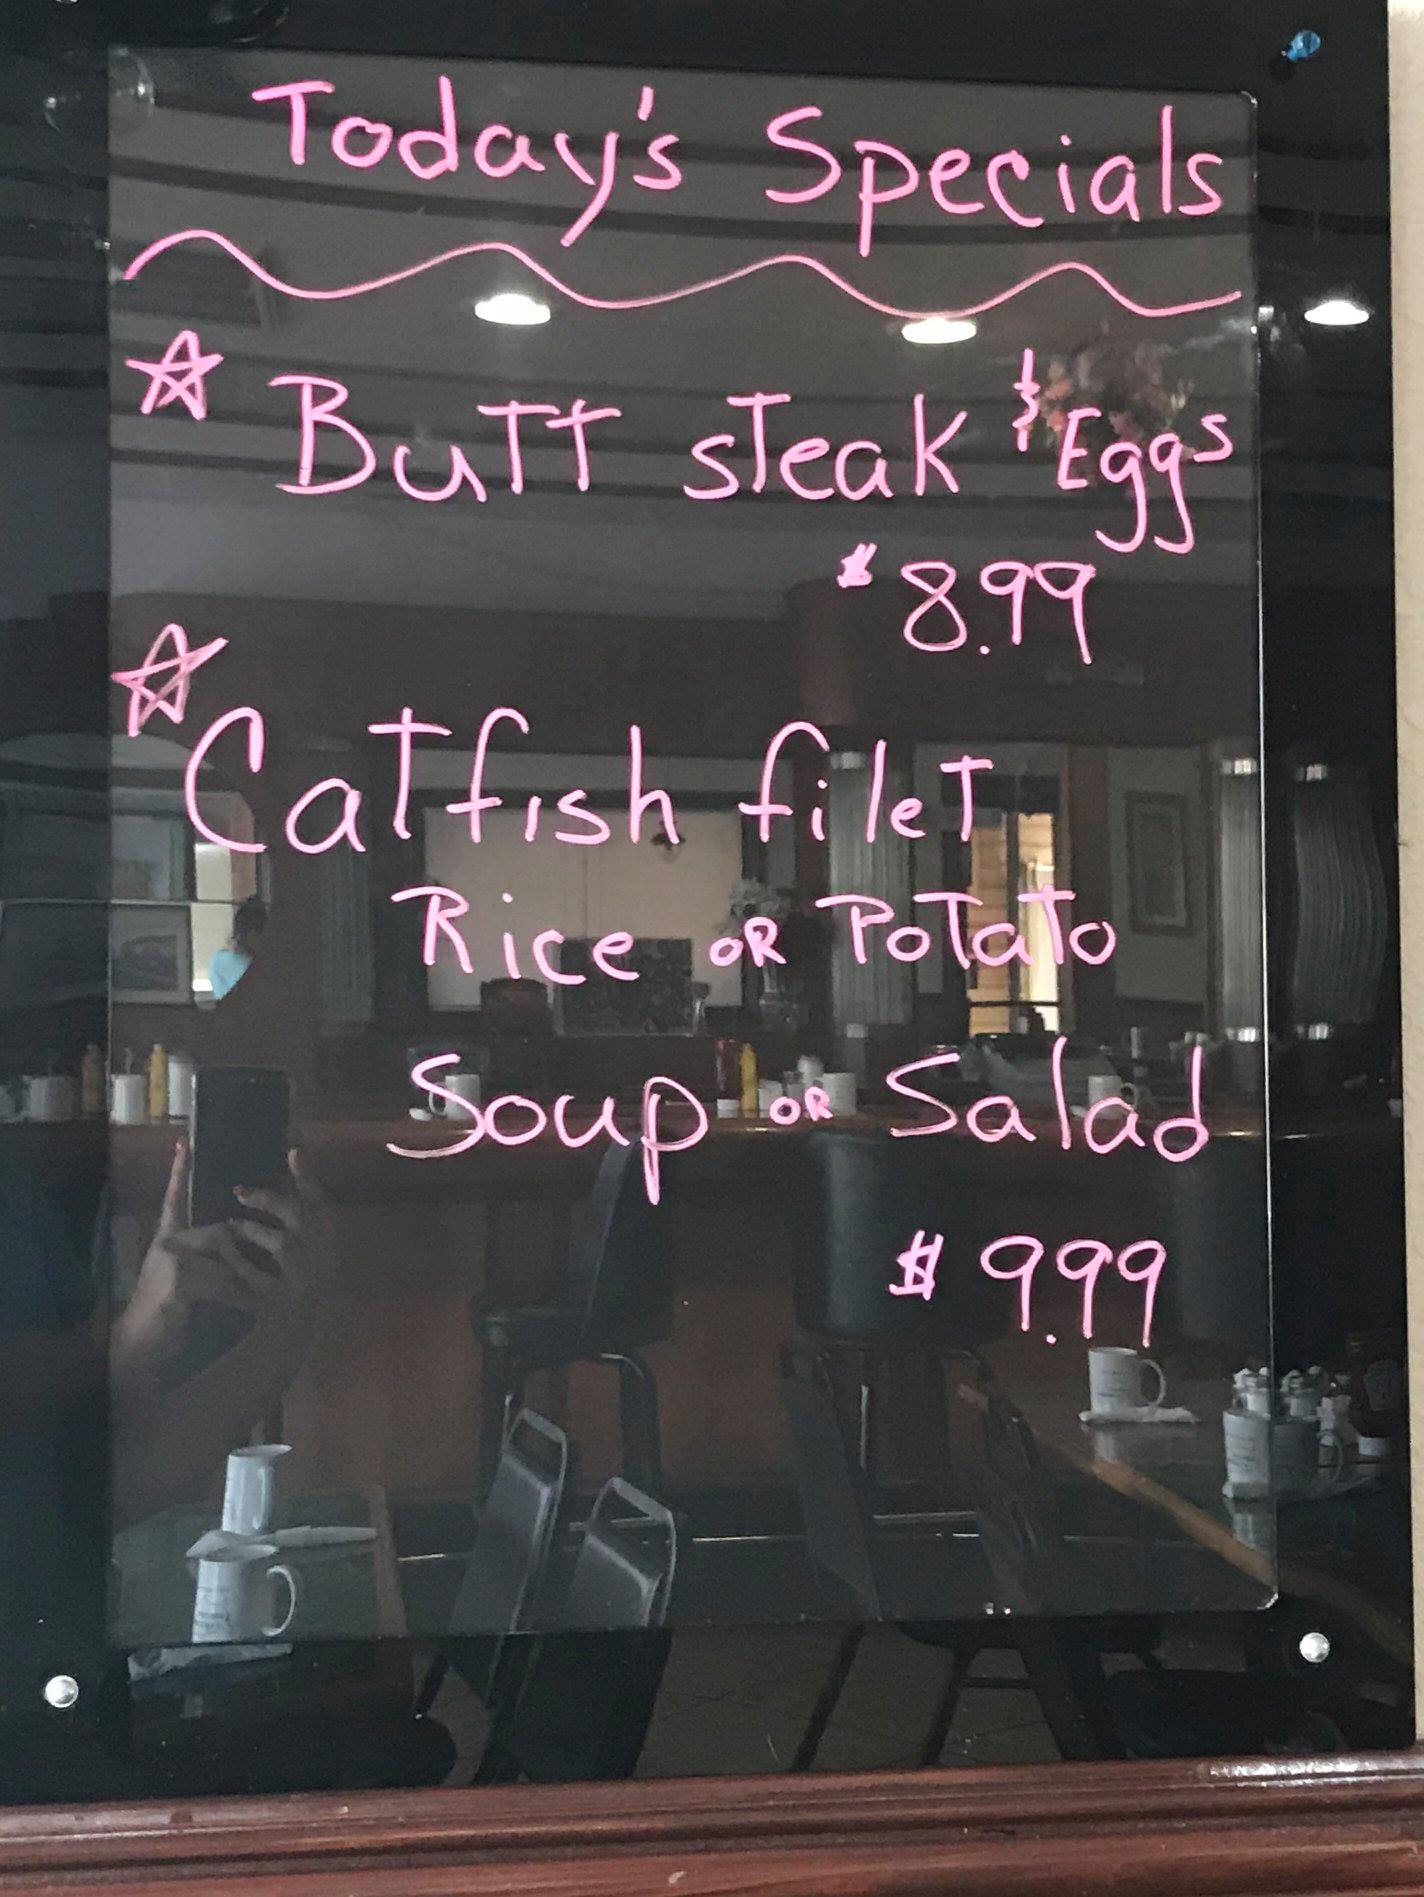 Today's Specials
Butt steak & Eggs
$8.99
Catfish filet
Rice or Potato
Soup or Salad
$9.99